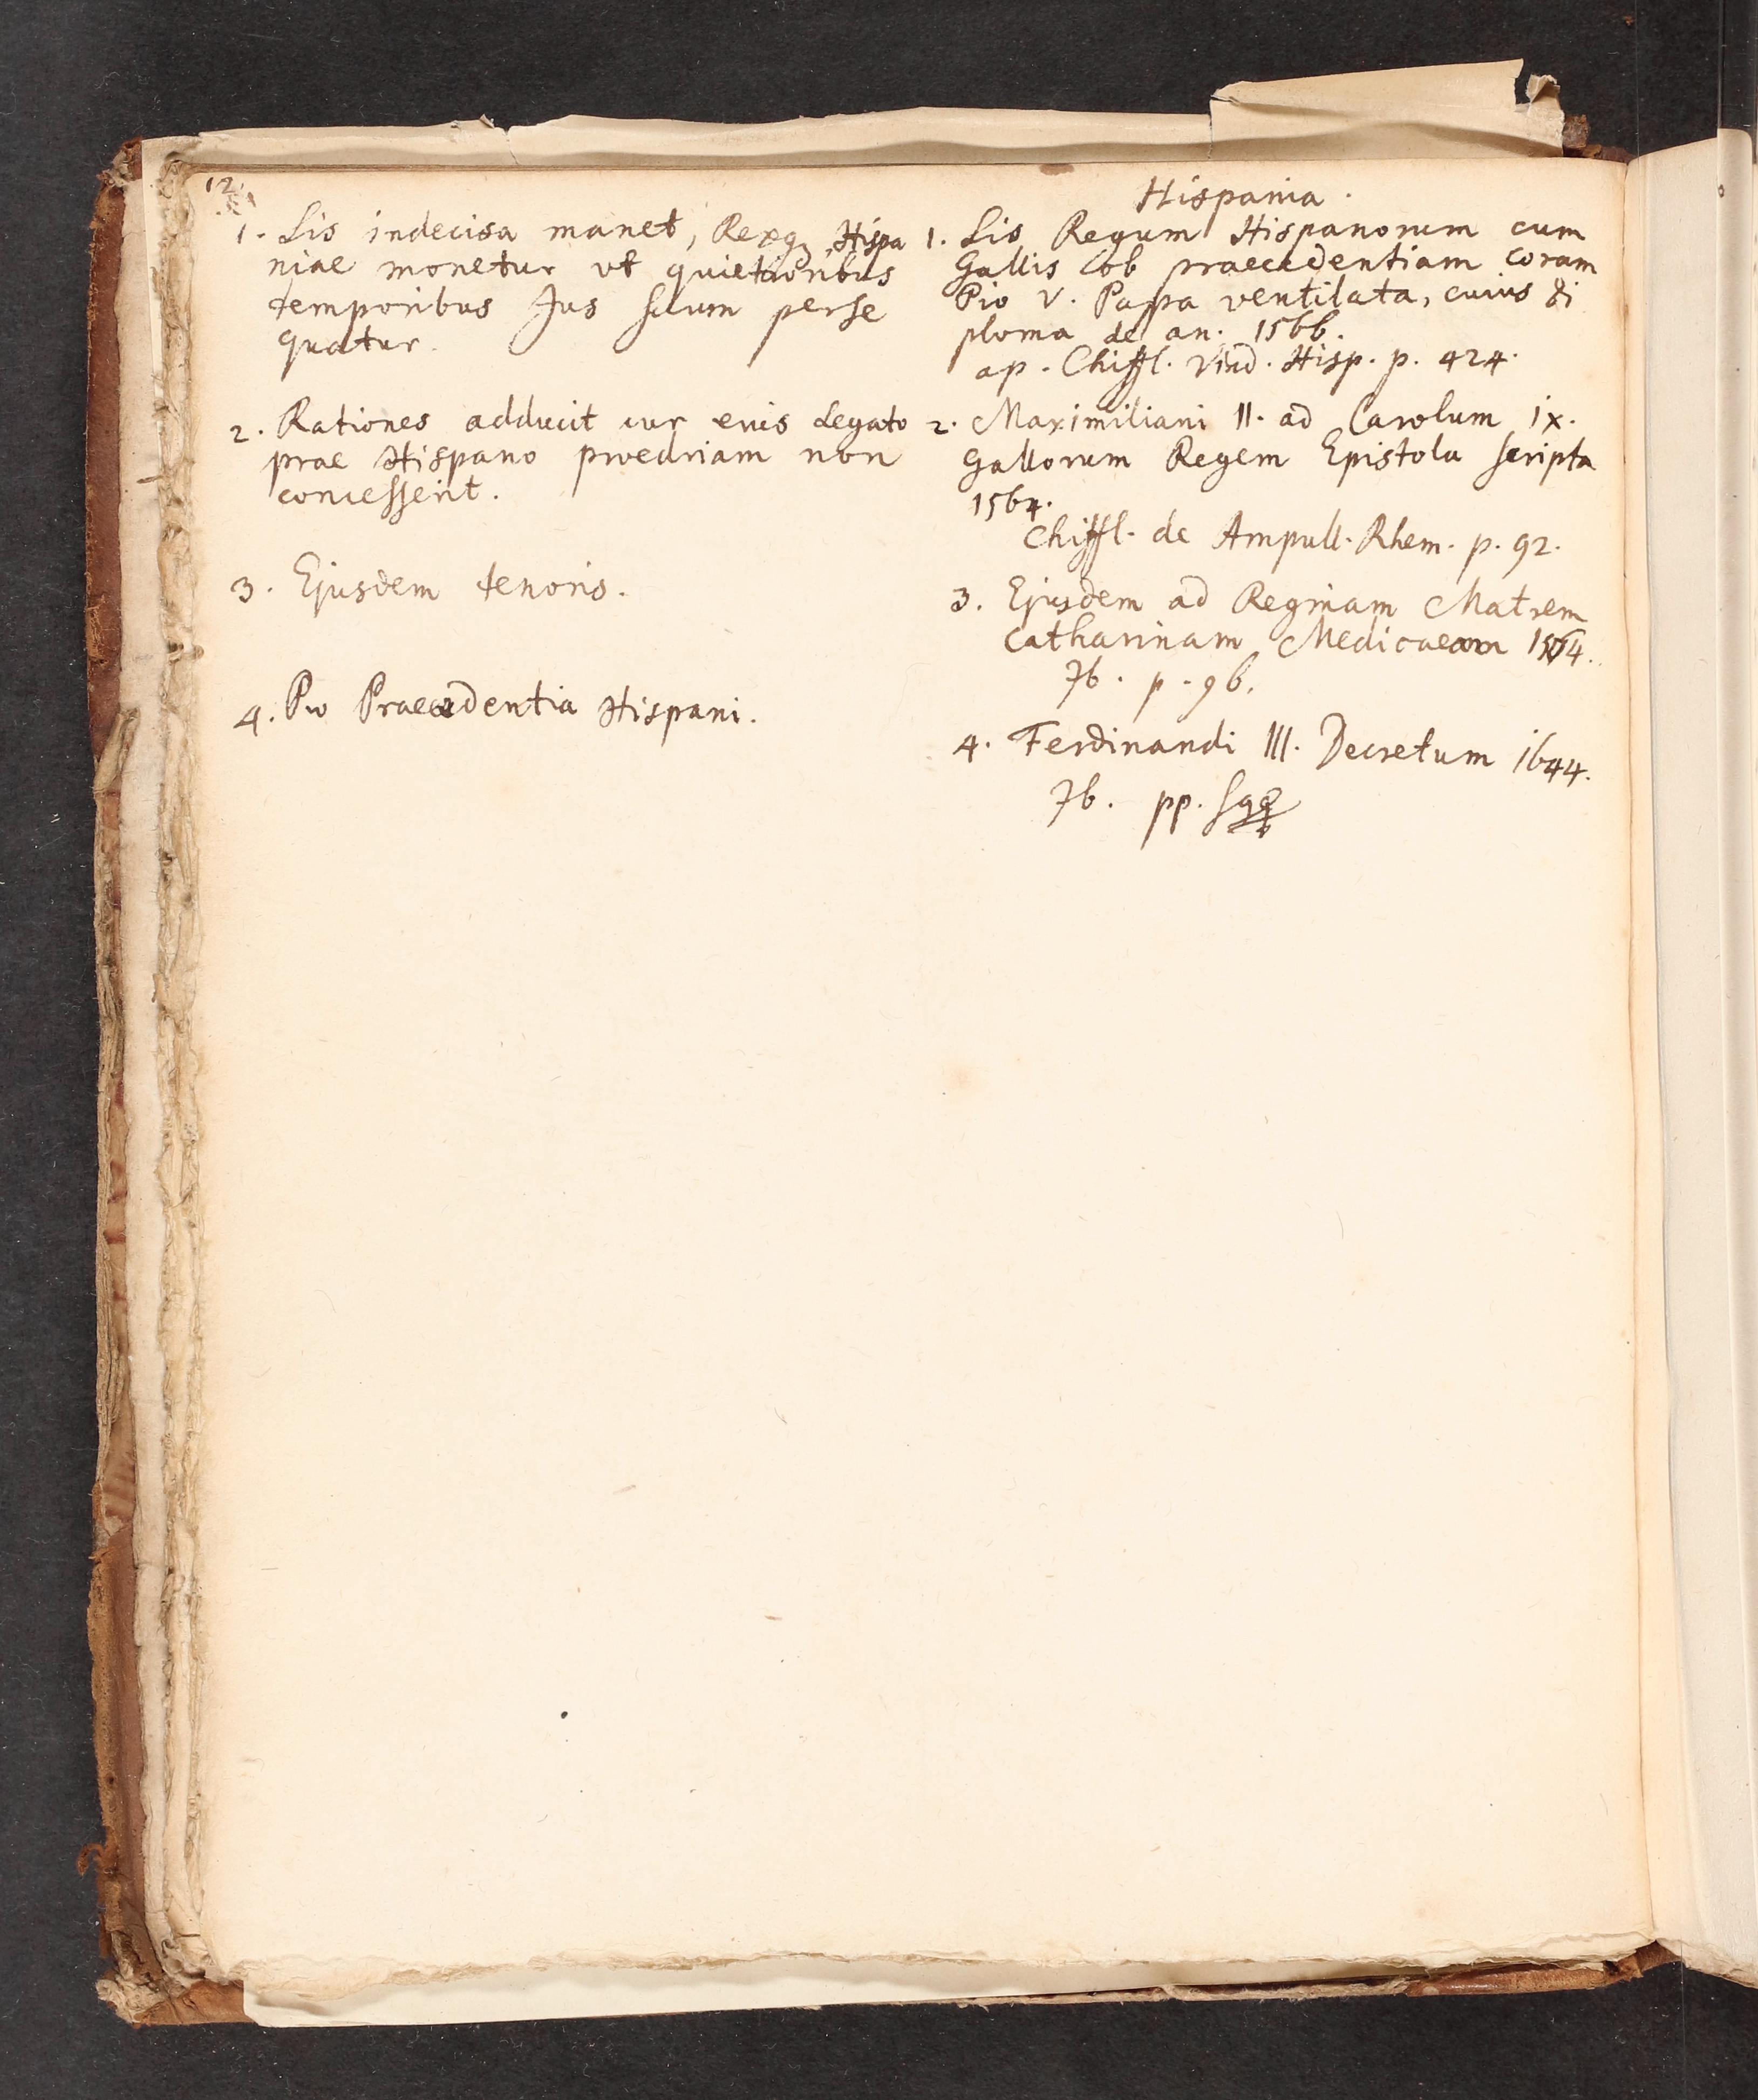 12.
1. Lis indecisa manet, Rexq Hispa
niae monetur vt quietioribus
temporibus Jus suum perse
quatur.
2. Rationes adducit cur ejus Legato
prae Hispano proedriam non
concesserit.
3. Ejusdem tenoris.
4. Pro Praecedentia Hispani.
Hispania.
1. Lis Regum Hispanorum cum
Gallis ob praecedentiam coram
Pio V. Papa ventilata, cuius di
ploma de an. 1566.
ap. Chiffl. Vind. Hisp. p. 424.
2. Maximiliani II. ad Carolum IX.
Gallorum Regem Epistola scripta
1564.
Chiffl. de Ampull. Rhem. p. 92.
3. Ejusdem ad Reginam Matrem
Catharinam Medicaeam 1564.
Ib. p. 96.
4. Ferdinandi III. Decretum 1644.
Ib. pp. sqq